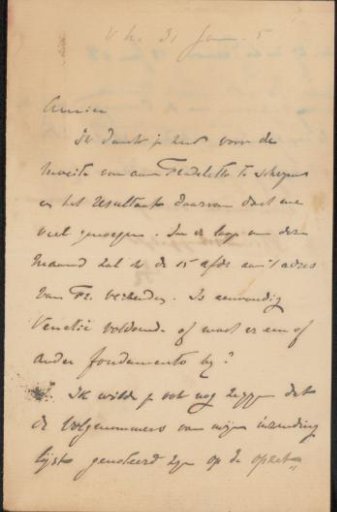 Amice
Ik dank je zeer voor de
moeite van aan Fradeletto te schrijven
en het resultaat daarvan doet me
veel genoegen. In de loop van deze
maand zal ik de 15 afds aan 't adres
van Fr. verzenden. Is eenvoudig
Venetië voldoende of moet er een of
ander fondamento bij?
Ik wilde je ook nog zeggen dat
de volgnummers van mijn inzending
lijst genoteerd zijn op de